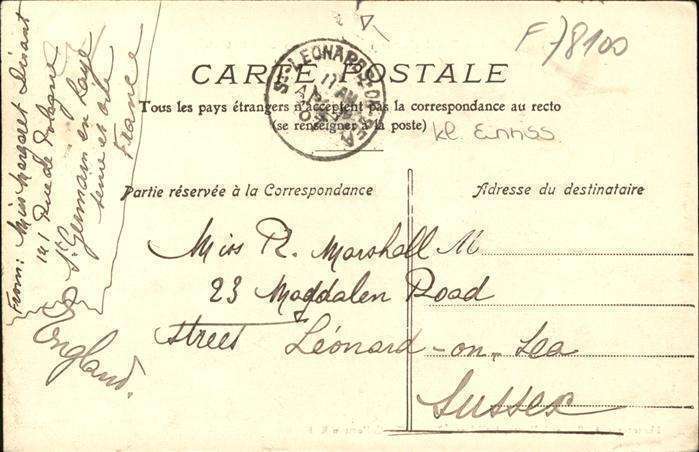 F 78100
CARTE POSTALE
Tous les pays étrangers n'acceptent pas la correspondance au recto
(se renseigner à la poste)
kl. Einriss
ST. LEONARDS-ON-SEA
11 AM
AP
Partie réservée à la Correspondance
Adresse du destinataire
From: Miss Margaret
141 Rue de Pologne
St Germain en Laye
Seine et Oise
France
Miss R. Marshall M
23 Magdalen Road
Street Léonard-on-Sea
Sussex
England.